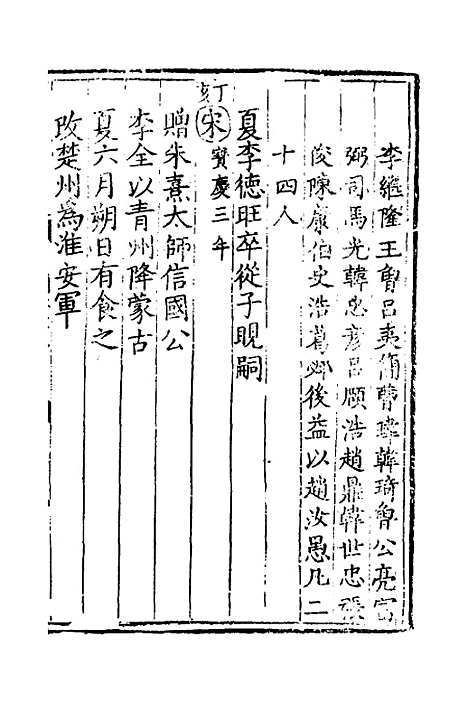 李繼隆王曾吕夷簡曹瑋韓琦曾公亮富
弼司馬光韓忠彦吕頤浩趙鼎韓世忠張
俊陳康伯史浩葛邲後益以趙汝愚凡二
十四人
夏李徳旺卒從子睍嗣
丁亥
宋寳慶三年
贈朱熹太師信國公
李全以青州降蒙古
夏六月朔日有食之
改楚州為淮安軍